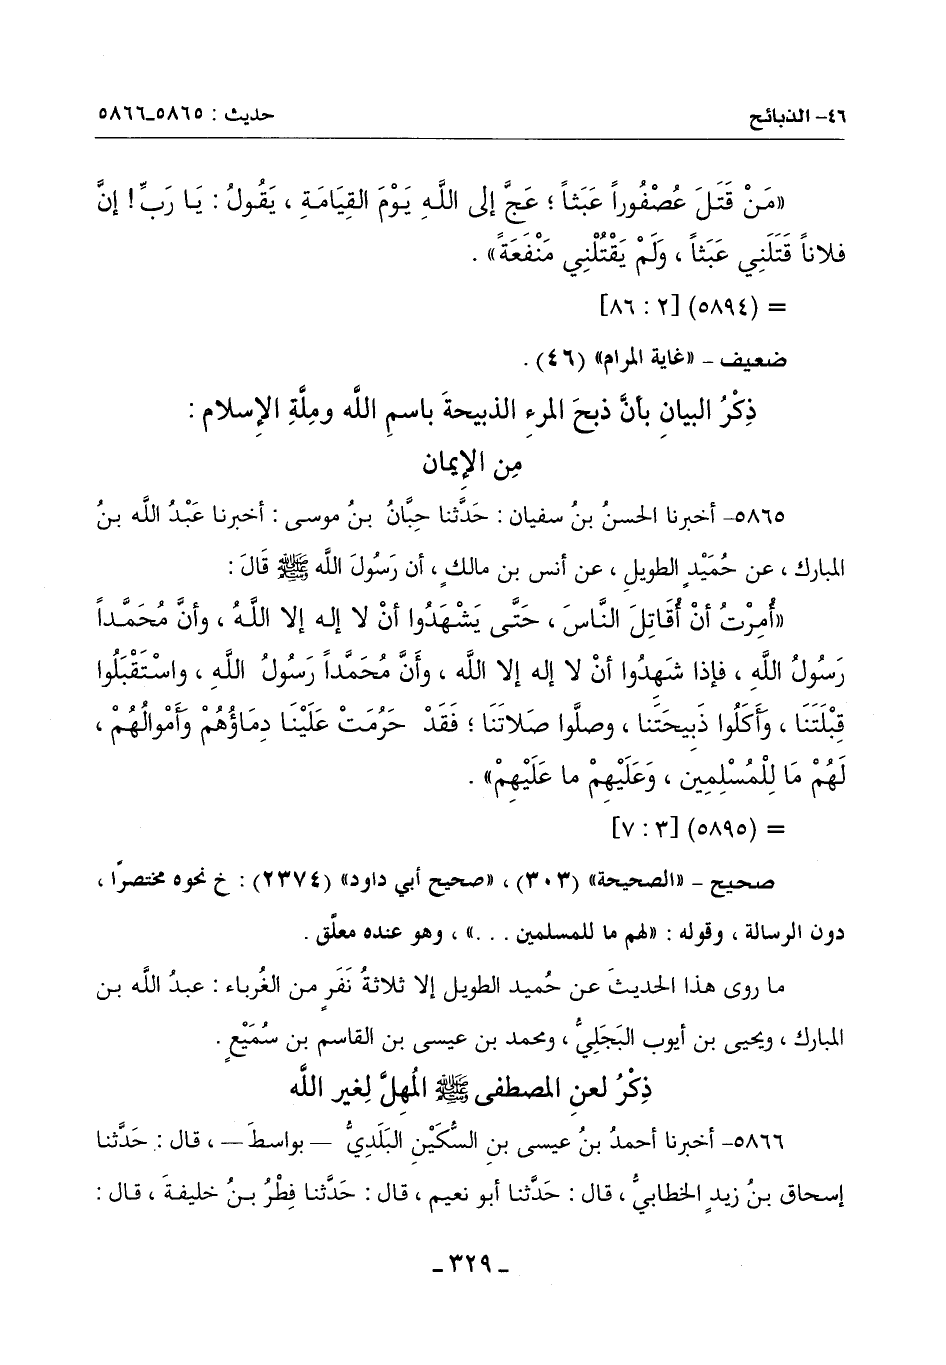 ٤٦- الذبائح حديث : ٥٨٦٥ـ٥٨٦٦
«مَنْ قَتَلَ عُصْفُوراً عَبَثاً ؛ عَجَّ إلى اللَّهِ يَوْمَ القِيَامَةِ ، يَقُولُ : يَا رَبِّ! إنَّ
فلاناً قَتَلَنِي عَبَثاً ، وَلَمْ يَقْتُلْنِي مَنْفَعَةً» .
= (٥٨٩٤) [٢ : ٨٦]
ضعيف - «غاية المرام» (٤٦) .
ذِكْرُ البيانِ بأنَّ ذبحَ المرءِ الذبيحةَ باسمِ اللَّه ومِلَّةِ الإسلام :
مِن الإيمان
٥٨٦٥- أخبرنا الحسنُ بنُ سفيان : حَدَّثنا حِبَّانُ بنُ موسى : أخبرنا عَبْدُ الله بنُ
المبارك ، عن حُمَيْدٍ الطويلِ ، عن أنس بن مالكٍ ، أن رَسُولَ الله ﷺ قَالَ :
«أُمِرْتُ أنْ أُقَاتِلَ النَّاسَ ، حَتَّى يَشْهَدُوا أنْ لا إله إلا اللَّهُ ، وأنَّ مُحَمَّداً
رَسُولُ اللَّهِ ، فإذا شَهِدُوا أنْ لا إله إلا الله ، وأَنَّ مُحَمَّداً رَسُولُ اللَّهِ ، واسْتَقْبَلُوا
قِبْلَتَنَا ، وَأَكَلُوا ذَبِيحَتَنا ، وصلَّوا صَلاتَنَا ؛ فَقَدْ حَرُمَتْ عَلَيْنَا دِمَاؤُهُمْ وَأَمْوالُهُمْ ،
لَهُمْ مَا لِلْمُسْلِمِينِ ، وَعَلَيْهِمْ ما عَلَيْهِمْ» .
= (٥٨٩٥) [٣ : ٧]
صحيح - «الصحيحة» (٣٠٣) ، «صحيح أبي داود» (٢٣٧٤) : خ نحوه مختصرًا ،
دون الرسالة ، وقوله : «لهم ما للمسلمين . . .» ، وهو عنده معلّق .
ما روى هذا الحديثَ عن حُميد الطويل إلا ثلاثةُ نَفَرٍ من الغُرباء : عبدُ الله بن
المبارك ، ويحيى بن أيوب البَجَلِيُّ ، ومحمد بن عيسى بن القاسم بن سُمَيْعٍ .
ذِكْرُ لعنِ المصطفى ﷺ المُهِلَّ لِغير اللَّه
٥٨٦٦- أخبرنا أحمدُ بنُ عيسى بنِ السُّكَيْنِ البَلَدِيُّ — بواسطَ — ، قال : حَدَّثنا
إسحاق بنُ زيدٍ الخطابيُّ ، قال : حَدَّثنا أبو نعيم ، قال : حَدَّثنا فِطْرُ بنُ خليفةَ ، قال :
ـ ٣٢٩ ـ